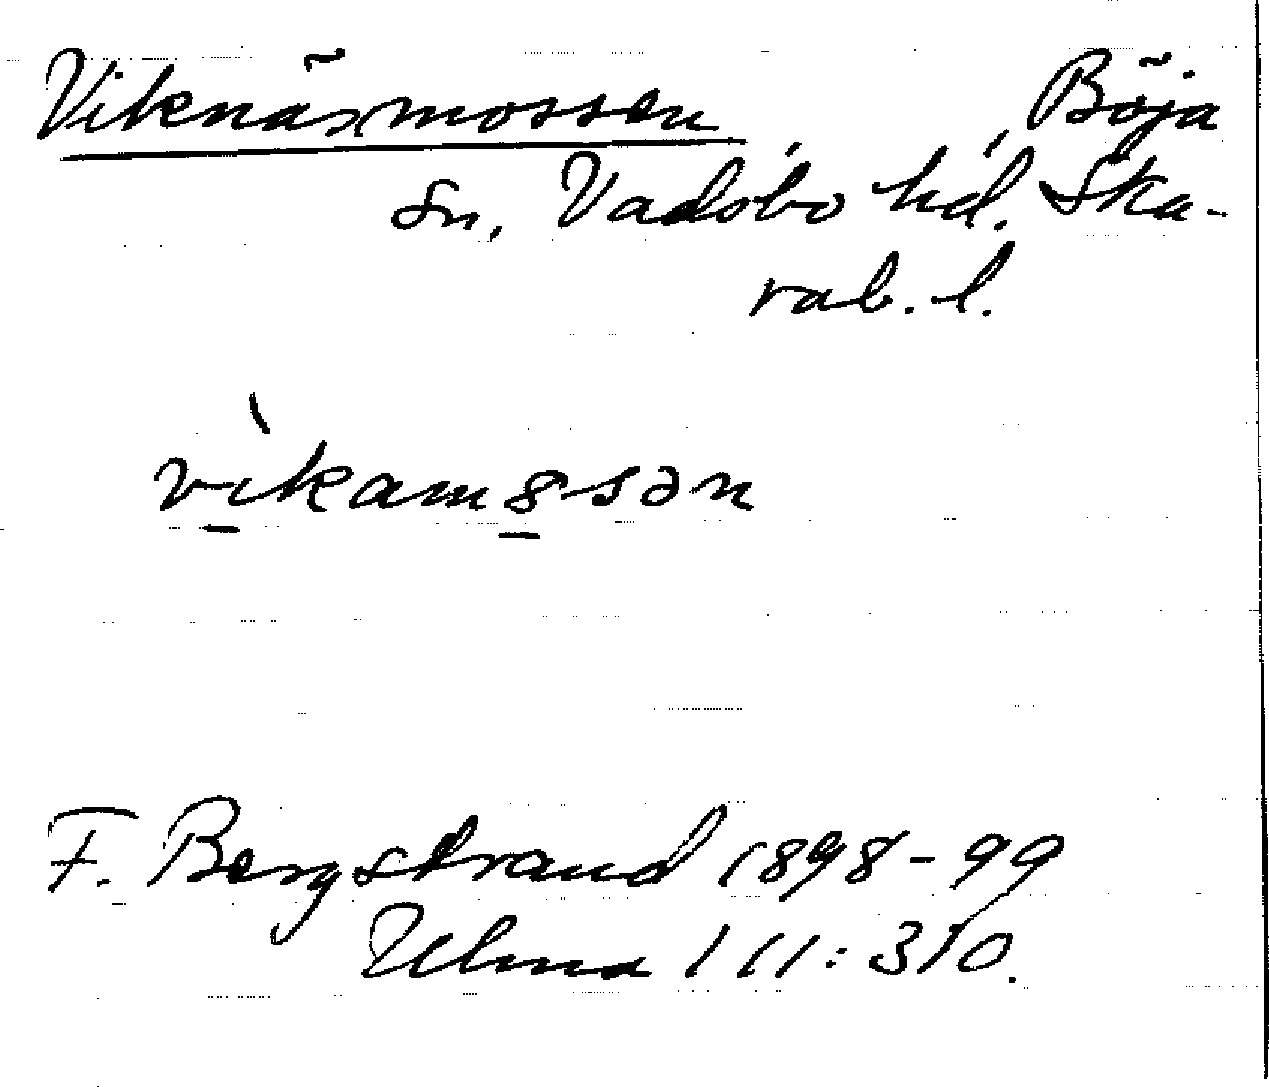 Viknäsmossen, Böja
sn, Vadsbo hd, Ska-
rab. l.
vìkam8sən
F. Bergstrand 1898-99
Ulma 111:310.